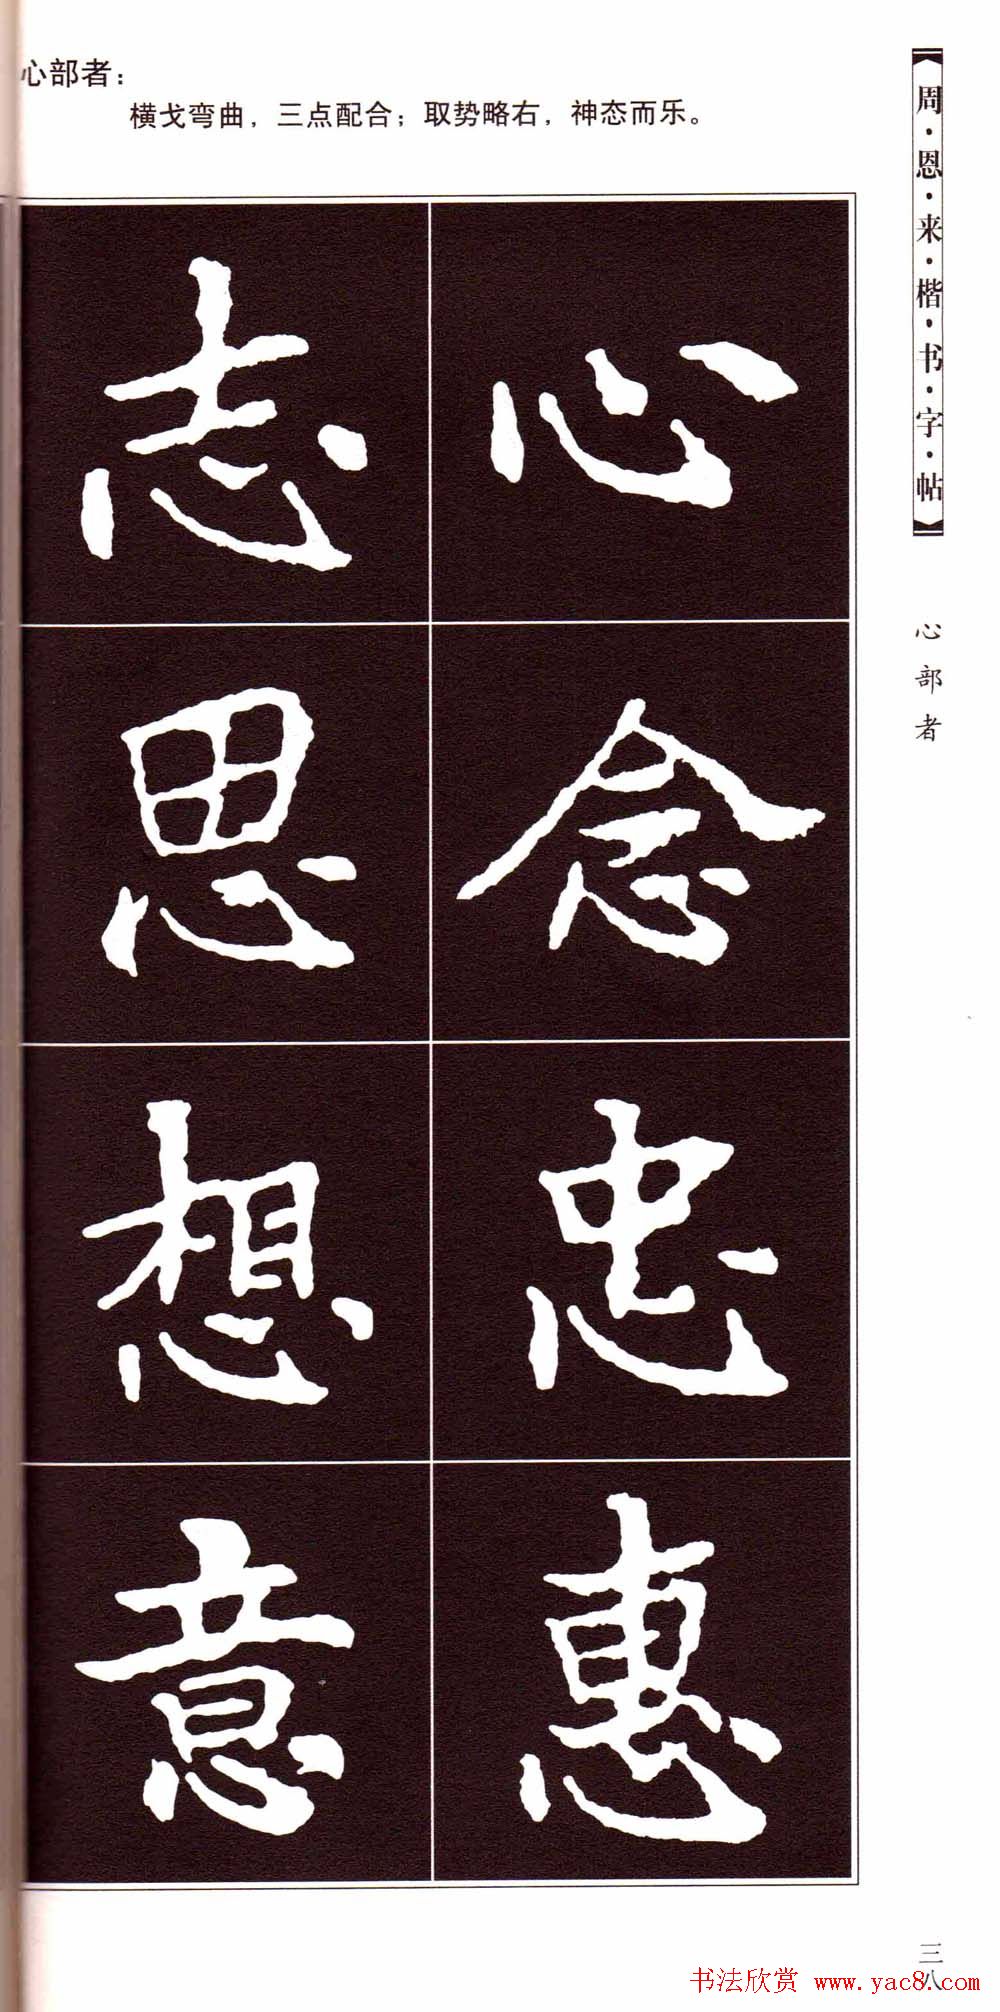 心部者：
横戈弯曲，三点配合；取势略右，神态而乐。
周·恩·来·楷·书·字·帖
心部者
心
念
忠
惠
志
思
想
意
三八
书法欣赏 www.yac8.com